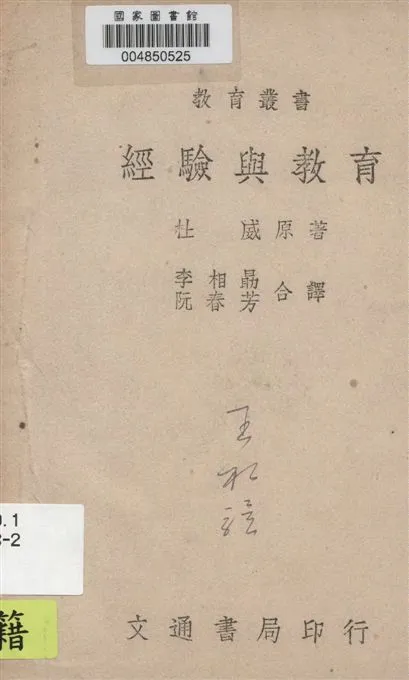 國家圖書館
004850525
教育叢書
經驗與教育
杜威原著
李相勗
阮春芳 合譯
王
.1
-2
籍
文通書局印行